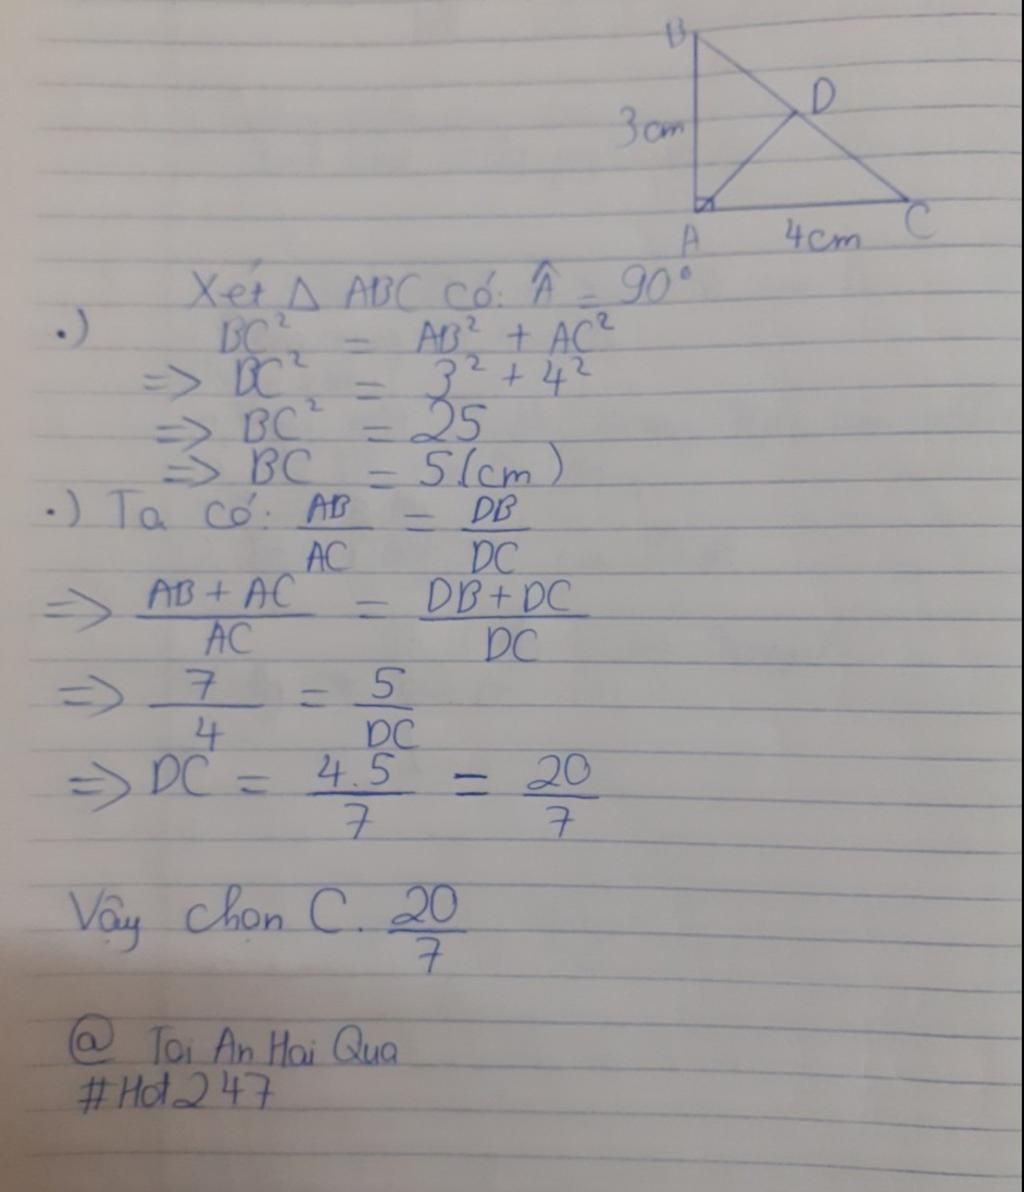 B
D
3cm
A
4cm
C
Xét Δ ABC có: Â = 90°
.) BC² = AB² + AC²
=> BC² = 3² + 4²
=> BC² = 25
=> BC = 5(cm)
.) Ta có: AB/AC = DB/DC
=> AB + AC/AC = DB + DC/DC
=> 7/4 = 5/DC
=> DC = 4.5/7 = 20/7
Vậy chọn C. 20/7
@ Toi An Hai Qua
#Hot247